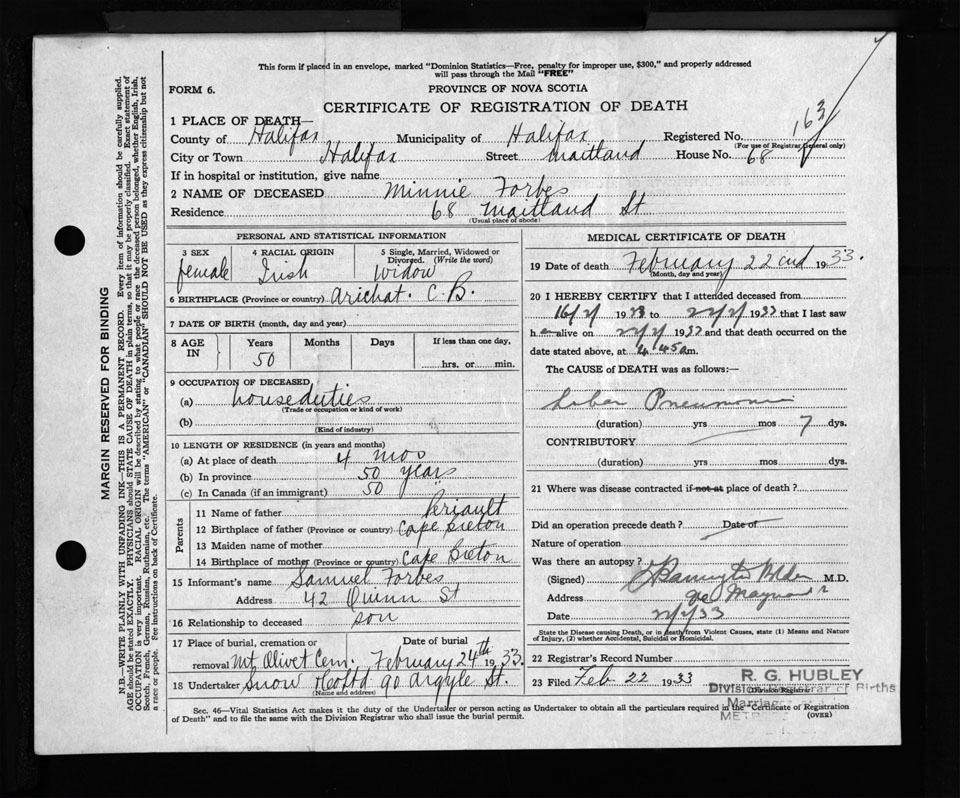 This form if placed in an envelope, marked "Dominion Statistics—Free, penalty for improper use, $300," and properly addressed
will pass through the Mail "FREE"
FORM 6.
PROVINCE OF NOVA SCOTIA
CERTIFICATE OF REGISTRATION OF DEATH
1 PLACE OF DEATH—
County of Halifax Municipality of Halifax Registered No. 163
(For use of Registrar General only)
City or Town Halifax Street Maitland House No. 68
If in hospital or institution, give name
2 NAME OF DECEASED Minnie Forbes
Residence 68 Maitland St
(Usual place of abode)
PERSONAL AND STATISTICAL INFORMATION
3 SEX 4 RACIAL ORIGIN 5 Single, Married, Widowed or
Divorged. (Write the word)
female Irish Widow
6 BIRTHPLACE (Province or country) Arichat. C.B.
7 DATE OF BIRTH (month, day and year)
8 AGE IN Years Months Days If less than one day,
50 hrs. or min.
9 OCCUPATION OF DECEASED
(a) house duties
(Trade or occupation or kind of work)
(b)
(Kind of industry)
10 LENGTH OF RESIDENCE (in years and months)
(a) At place of death 4 mos
(b) In province 50 years
(c) In Canada (if an immigrant) 50 "
Parents
11 Name of father Periault
12 Birthplace of father (Province or country) Cape Breton
13 Maiden name of mother
14 Birthplace of mother (Province or country) Cape Breton
15 Informant's name Samuel Forbes
Address 42 Quinn St
16 Relationship to deceased son
17 Place of burial, cremation or Date of burial
removal Mt Olivet Cem. February 24th 1933.
18 Undertaker Snow & Co Ltd 90 Argyle St.
(Name and address)
MEDICAL CERTIFICATE OF DEATH
19 Date of death February 22nd 1933.
(Month, day and year)
20 I HEREBY CERTIFY that I attended deceased from
16/2/ 1933 to 22/2/ 1933 that I last saw
h alive on 22/2/ 1933 and that death occurred on
date stated above, at 4.45 a m.
The CAUSE of DEATH was as follows:—
Lobar Pneumonia
(duration) yrs mos 7 dys.
CONTRIBUTORY
(duration) yrs mos dys.
21 Where was disease contracted if not at place of death?
Did an operation precede death? Date of
Nature of operation
Was there an autopsy?
(Signed) M.D.
Address Maynard
Date 22/2/33
State the Disease causing Death, or in death from Violent Causes, state (1) Means and Nature
of Injury, (2) whether Accidental, Suicidal or Homicidal.
22 Registrar's Record Number
23 Filed Feb 22 1933
R. G. HUBLEY
Division Registrar of Births
(Division Registrar)
Sec. 46—Vital Statistics Act makes it the duty of the Undertaker or person acting as Undertaker to obtain all the particulars required in the "Certificate of Registration
of Death" and to file the same with the Division Registrar who shall issue the burial permit. (OVER)
MARGIN RESERVED FOR BINDING
N.B.—WRITE PLAINLY WITH UNFADING INK—THIS IS A PERMANENT RECORD. Every item of information should be carefully supplied.
AGE should be stated EXACTLY. PHYSICIANS should STATE CAUSE OF DEATH in plain terms, so that it may be properly classified. Exact statement of
OCCUPATION is very important. RACIAL ORIGIN will be described by stating to what people or race the deceased person belonged, whether English, Irish,
Scotch, French, German, Russian, Ruthenian, etc. The terms "AMERICAN" or "CANADIAN" SHOULD NOT BE USED as they express citizenship but not
a race or people. See instructions on back of Certificate.